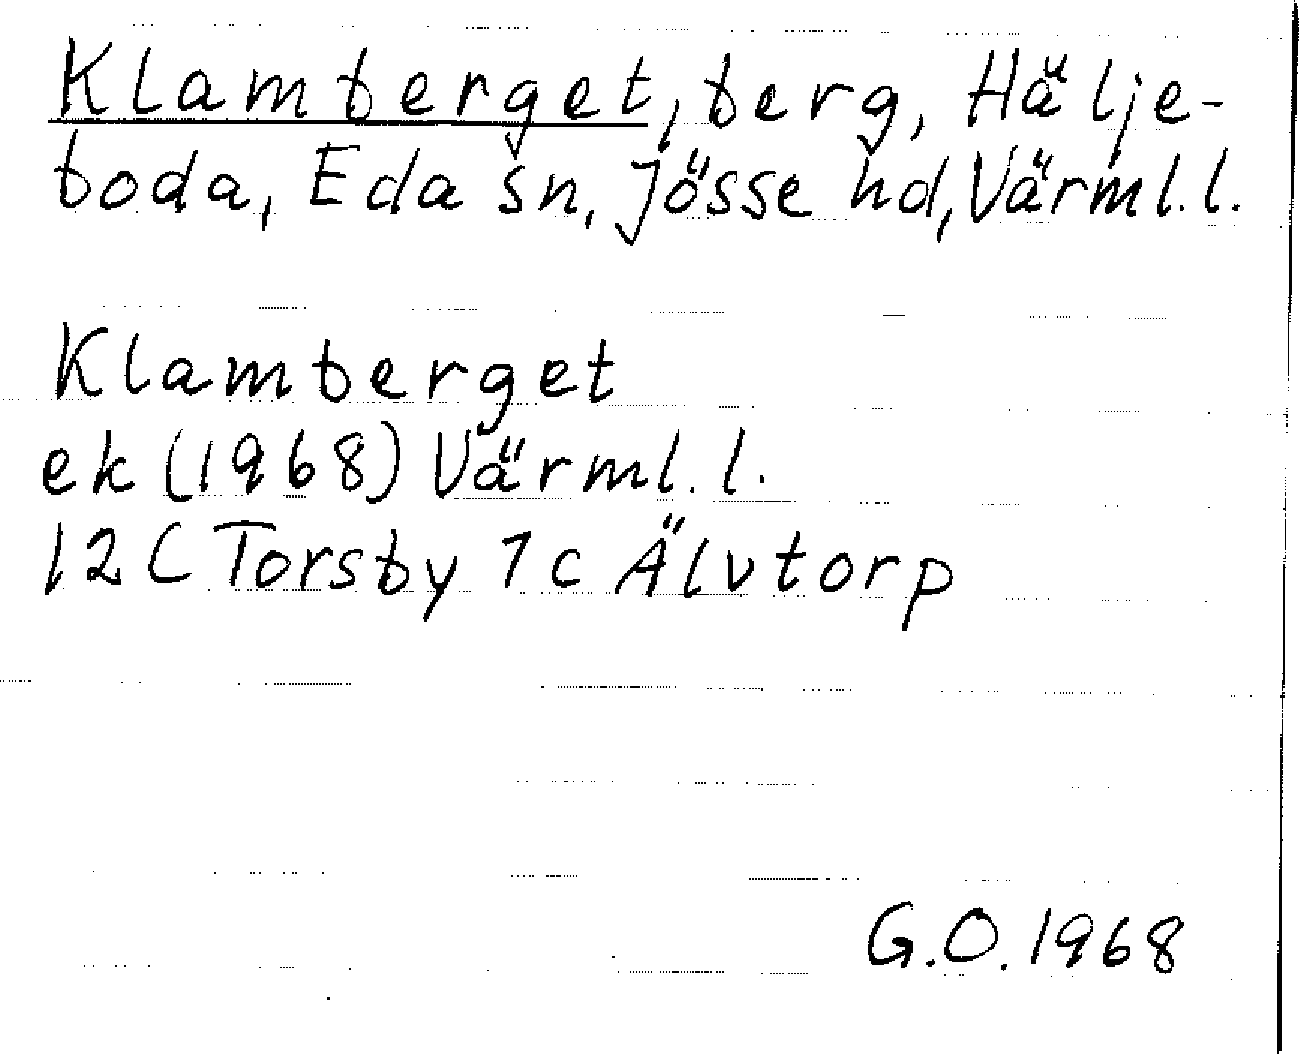 Klamberget, berg, Hälje-
boda, Eda sn, Jösse hd, Värml. l.
Klamberget
ek (1968) Värml. l.
12C Torsby 1c Älvtorp
G.O. 1968